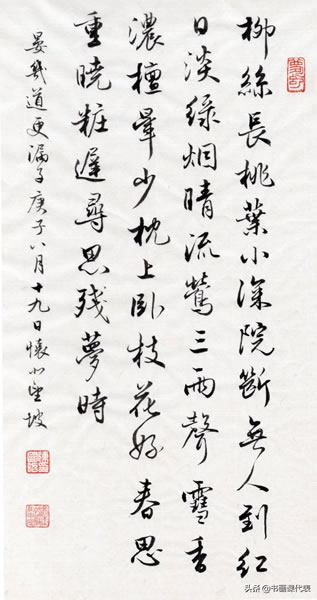 柳絲長桃葉小深院斷無人到紅
日淡綠烟晴流鶯三兩聲雪香
濃檀暈少枕上卧枝花好春思
重曉粧遲尋思殘夢時
晏幾道更漏子庚子八月十九日懷望坡
头条 @书画缘代表